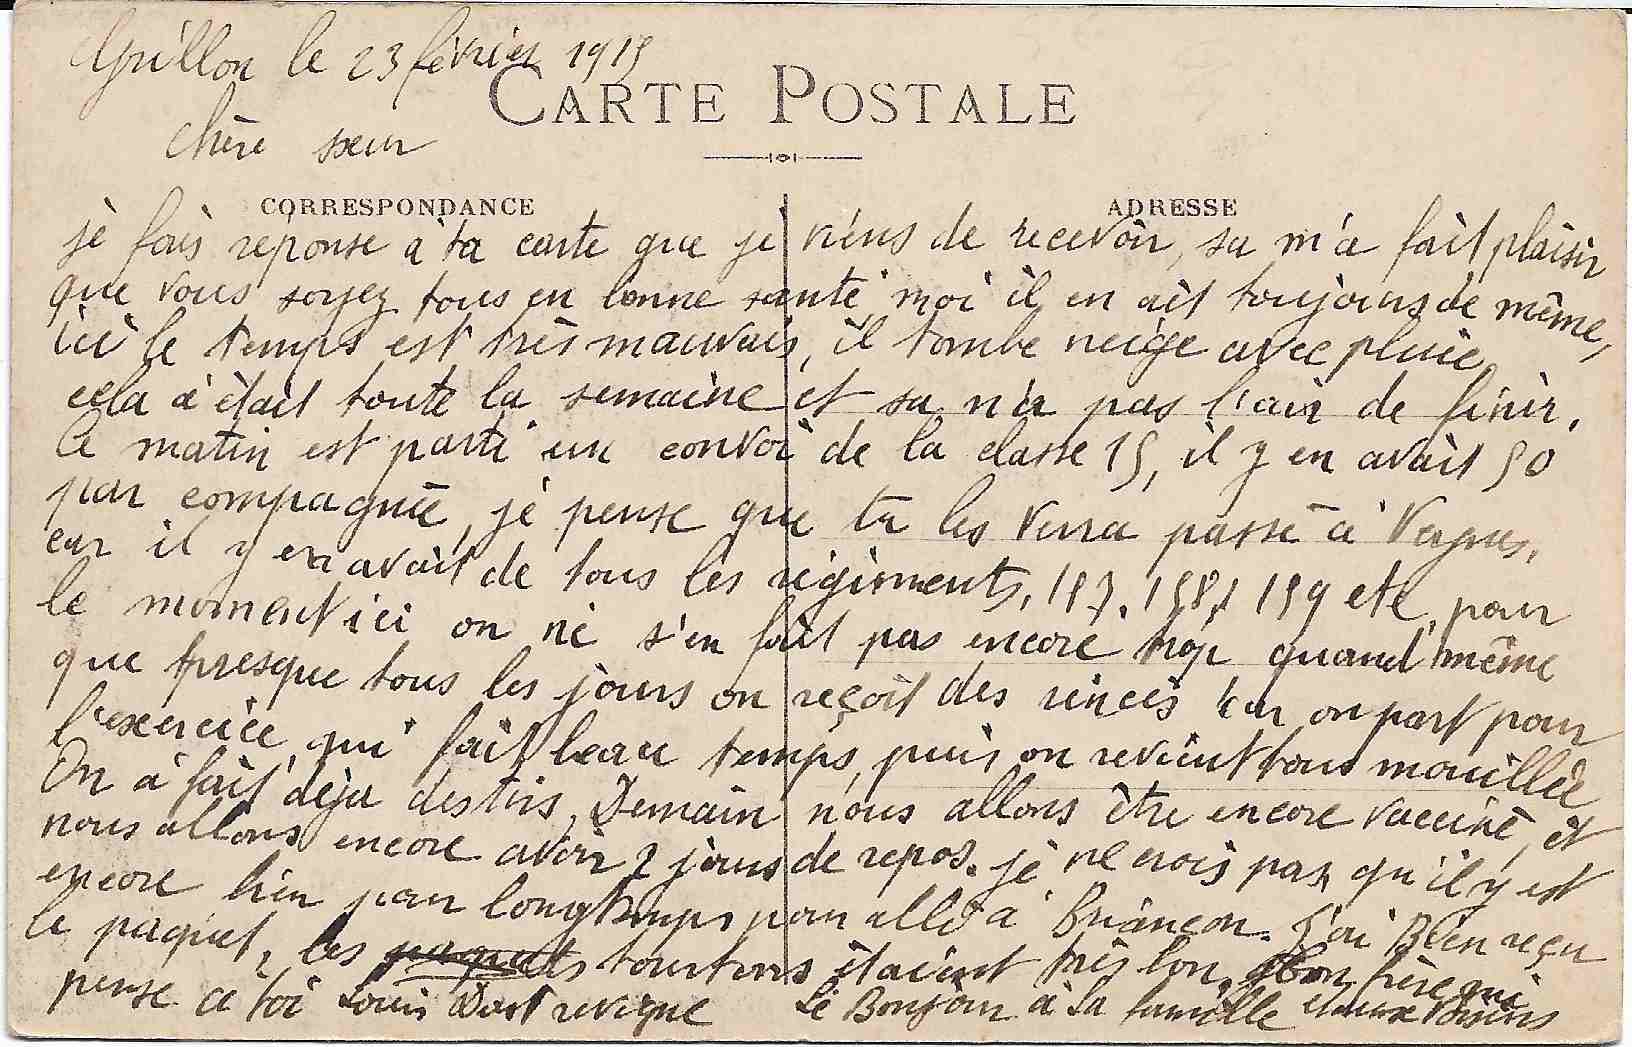 Grillon le 23 février 1915
CARTE POSTALE
chère sœur
CORRESPONDANCE
ADRESSE
je fais reponse à ta carte que je viens de recevoir, sa m'a fait plaisir
que vous soyez tous en bonne santé, moi il en ait toujours de même,
ici le temps est très mauvais, il tombe neige avec pluie,
cela à était toute la semaine et sa n'a pas l'air de finir.
Ce matin est parti un convoi de la classe 15, il y en avait 50
par compagnie, je pense que tu les verra passé à
car il y en avait de tous les régiments, 157. 158, 159 etc, pour
le moment ici on ne s'en fait pas encore trop quand même
que presque tous les jours on reçoit des rincés car on part pour
l'exercice qui fait beau temps, puis on revient tous mouillée
On à fait déja des tirs, Demain nous allons être encore vacciné, et
nous allons encore avoir 2 jours de repos. je ne crois pas qu'il y est
encore bien pour longtemps pour allé à Briançon. J'ai Bien reçu
le paquet, les paquets tourtons étaient très bon, Ton frère qui
pense a toi Louis Le Bonjour à la famille et aux voisins